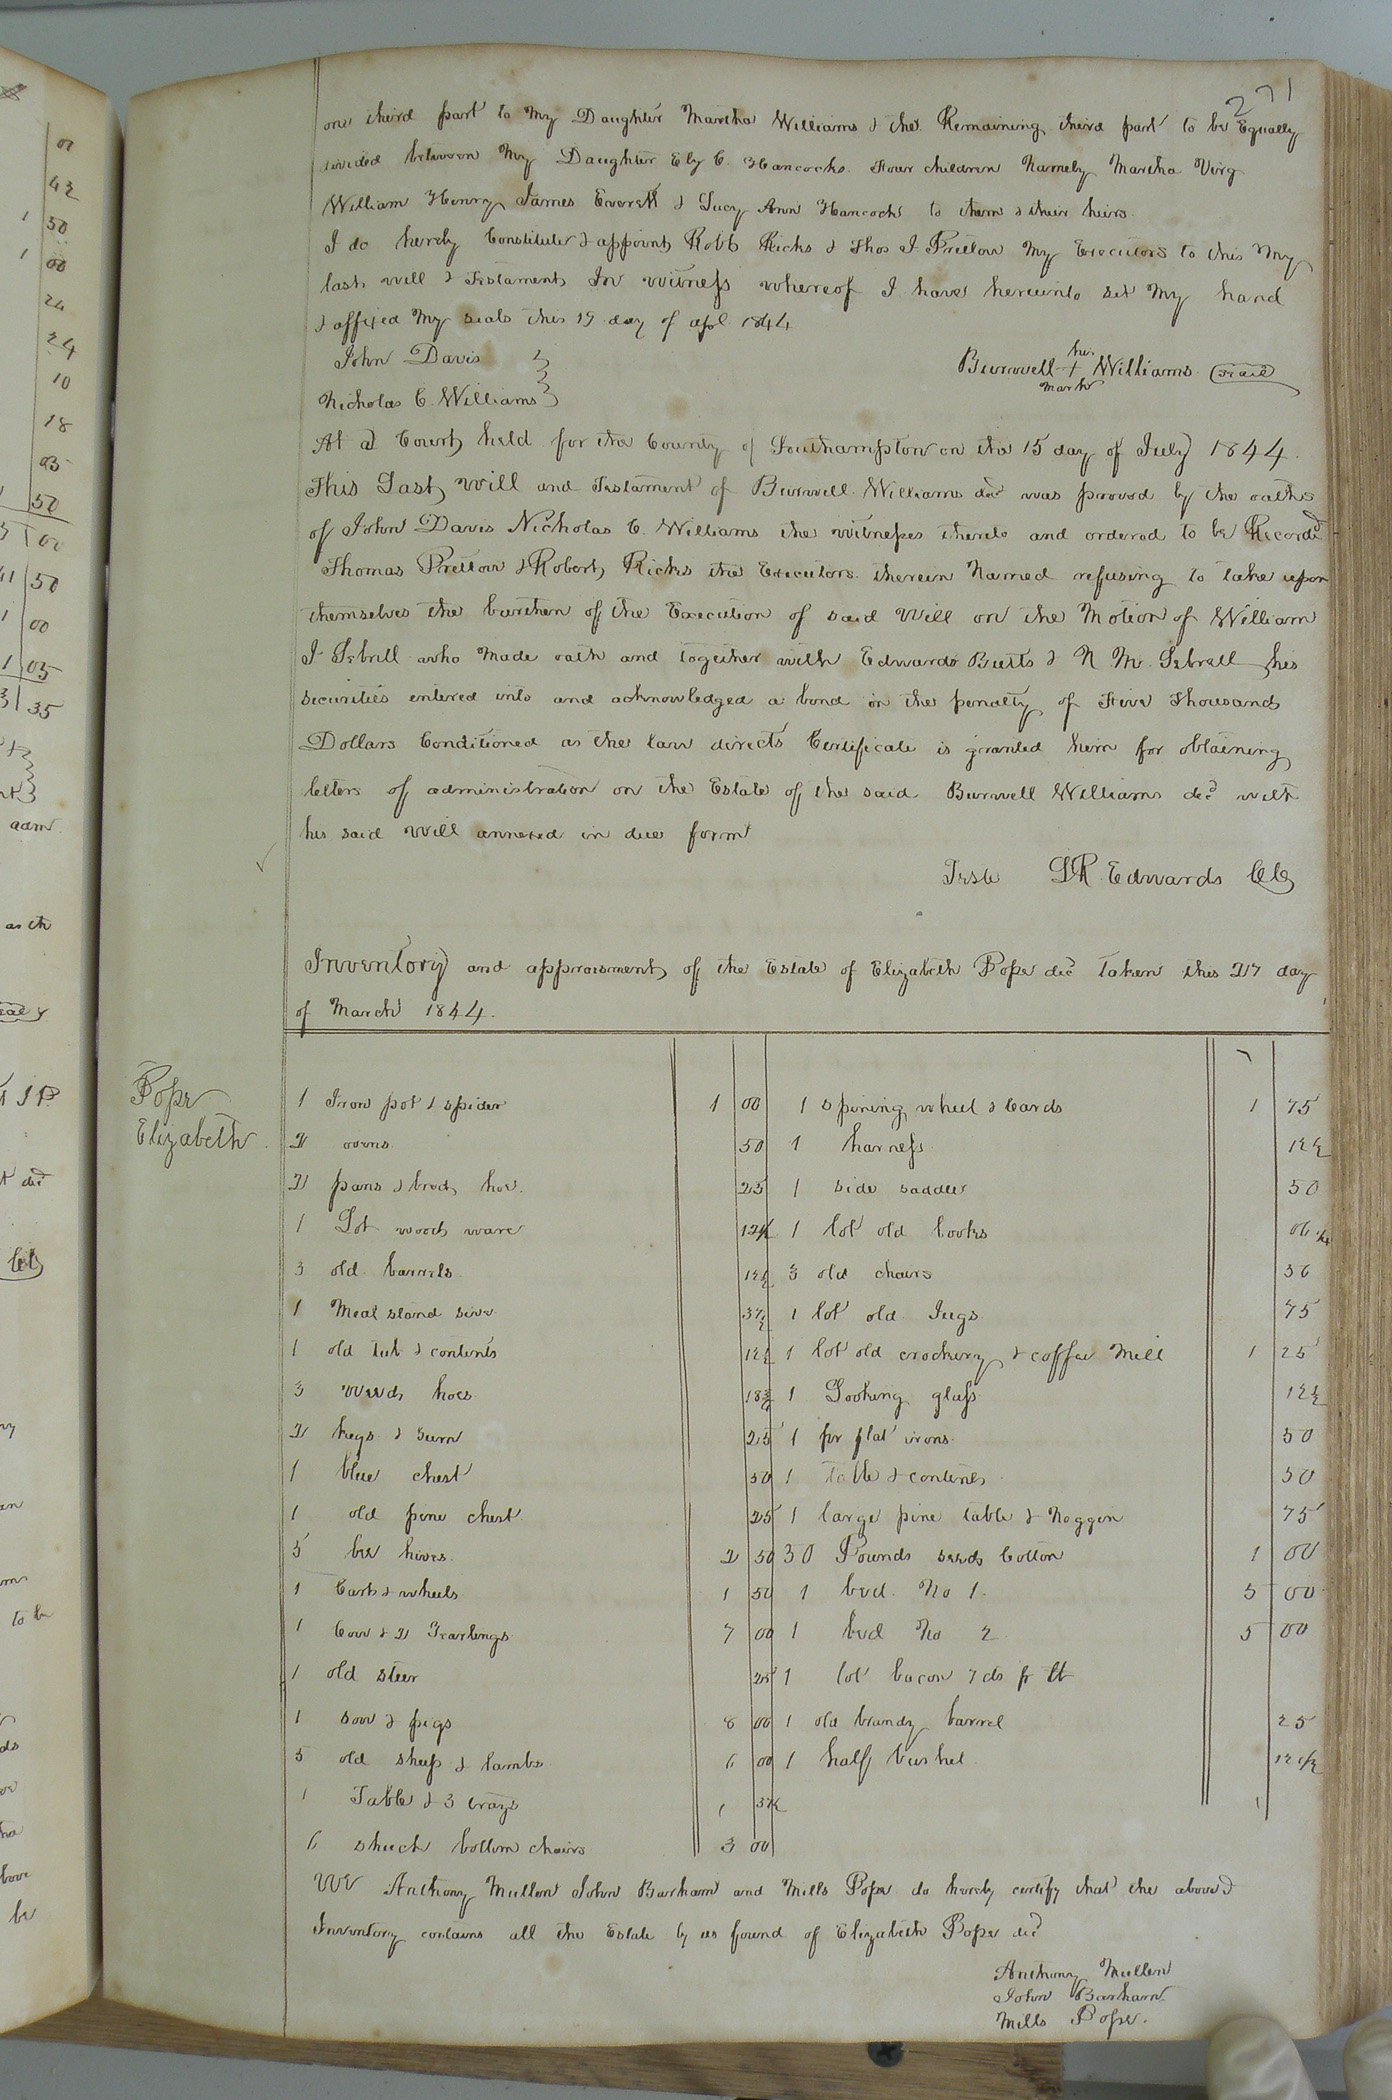 271
one third part to My Daughter Martha Williams & the Remaining third part to be Equally
divided between My Daughter Ely C. Hancocks Four children Namely Martha Virg
William Henry James Everett & Lucy Ann Hancock to them & their heirs.
I do hereby Constitute & appoint Robt Ricks & Thos J. Pretlow My Executors to this My
last will & Testament In witness whereof I have hereunto set My hand
& affixed My seals this 19 day of apl 1844
John Davis
his
Burwell + Williams Seal
mark
Nicholas C. Williams
At a Court held for the County of Southampton on the 15 day of July 1844.
This Last Will and Testament of Burwell Williams decd was proved by the oaths
of John Davis Nicholas C. Williams the witnesses thereto and ordered to be Recordd
Thomas Pretlow & Robert Ricks the Executors therein Named refusing to take upon
themselves the burthen of the Execution of said Will on the Motion of William
J. Sebrell who Made oath and together with Edwards Butts & N. M. Sebrell his
securities entered into and acknowledged a bond in the penalty of Five Thousand
Dollars Conditioned as the law directs Certificate is granted him for obtaining
letters of administration on the Estate of the said Burwell Williams decd with
his said Will annexed in due form
Teste LR Edwards Clk
Inventory and appraisment of the Estate of Elizabeth Pope decd Taken this 27 day
of March 1844.
Pope
Elizabeth
1 Iron pot & spider 1 00 1 spining wheel & Cards 1 75
2 ovens 50 1 harness 12½
2 pans & broad hoe. 25 1 side saddle 50
1 Lot wood ware 12½ 1 lot old books 06 ¼
3 old barrels 12½ 3 old chairs 36
1 Meal stand sive 37½ 1 lot old Jugs 75
1 old tub & contents 12½ 1 lot old crockery & coffee Mill 1 25
3 weed hoes 18¾ 1 Looking glass 12½
2 kegs & 25 1 pr flat irons 50
1 blue chest 50 1 table & contents 50
1 old pine chest 25 1 large pine table & Noggin 75
5 bee hives 2 50 30 Pounds seed Cotton 1 00
1 Cart & wheels 1 50 1 bed No 1. 5 00
1 Cow & 2 Yearlings 7 00 1 bed No 2 5 00
1 old steer 25 1 lot bacon 7 cts pr lb
1 sow & pigs 8 00 1 old brandy barrel 25
5 old sheep & lambs 6 00 1 half bushel 12 1/2
1 Table & 3 trays 1 37½
6 bottom chairs 3 00
We Anthony Mullen John Barham and Mills Pope do hereby certify that the above
Inventory contains all the Estate by us found of Elizabeth Pope decd
Anthony Mullen
John Barham
Mills Pope.